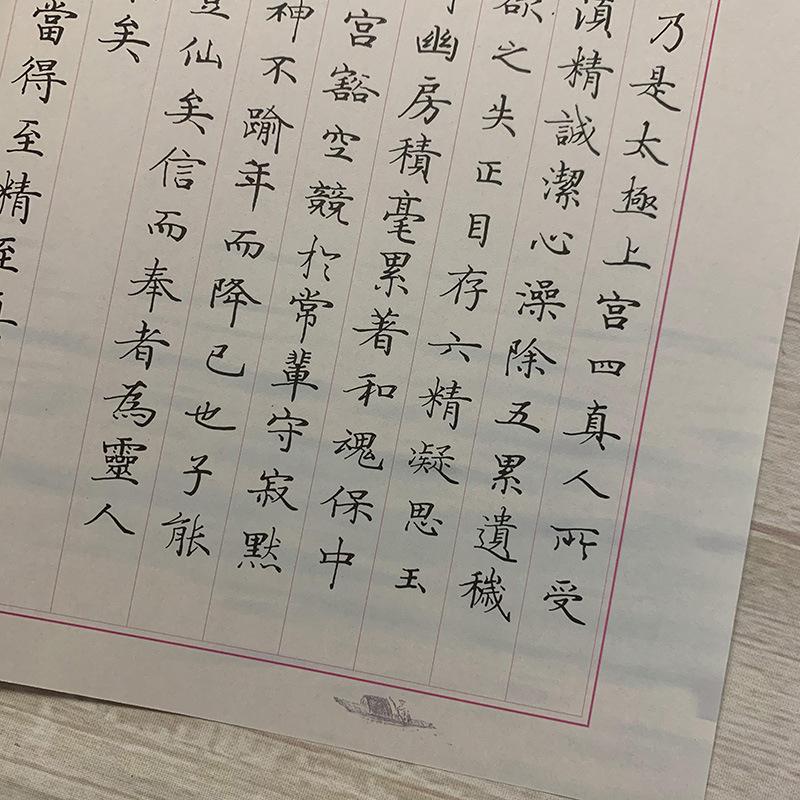 乃是太極上宮四真人所受
湏精誠潔心澡除五累遺穢
欲之失正目存六精凝思玉
幽房積毫累著和魂保中
宮豁空競於常輩守寂默
神不踰年而降已也子能
仙矣信而奉者為靈人
矣
當得至精至